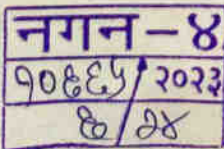 नगन-४
१०६६५/२०२३
६/२४